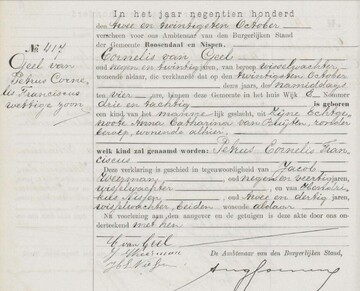 In het jaar negentien honderd
den twee en twintigsten October
verscheen voor ons Ambtenaar van den Burgerlijken Stand
der Gemeente Roosendaal en Nispen.
Cornelis van Geel
oud negen en twintig jaren, van beroep wisselwachter
wonende aldaar, die verklaarde dat op twintigsten October
dezes jaars, des namiddags
ten vier ure, binnen deze Gemeente in het huis Wijk E Nommer
drie en tachtig is geboren
een kind, van het mannelijke geslacht, uit zijne Echtge-
noote Anna Catharina van zonder
beroep, wonende alhier
welk kind zal genaamd worden: Petrus Cornelis Fran-
ciscus
Deze verklaring is geschied in tegenwoordigheid van Jacob
Weezman, oud negen en veertig jaren,
wisselwachter en van
oud twee en dertig jaren,
wisselwachter beiden wonende aldaar
Na voorlezing aan den aangever en de getuigen is deze akte door ons
onderteekend met hen
C van Geel
De Ambtenaar van den Burgerlijken Stand,
№ 417
Geel van
Petrus Corne-
lis Franciscus
wettige zoon